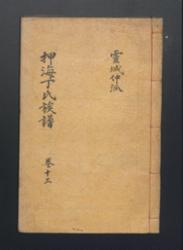 靈城仲派
押海丁氏族譜
卷十三